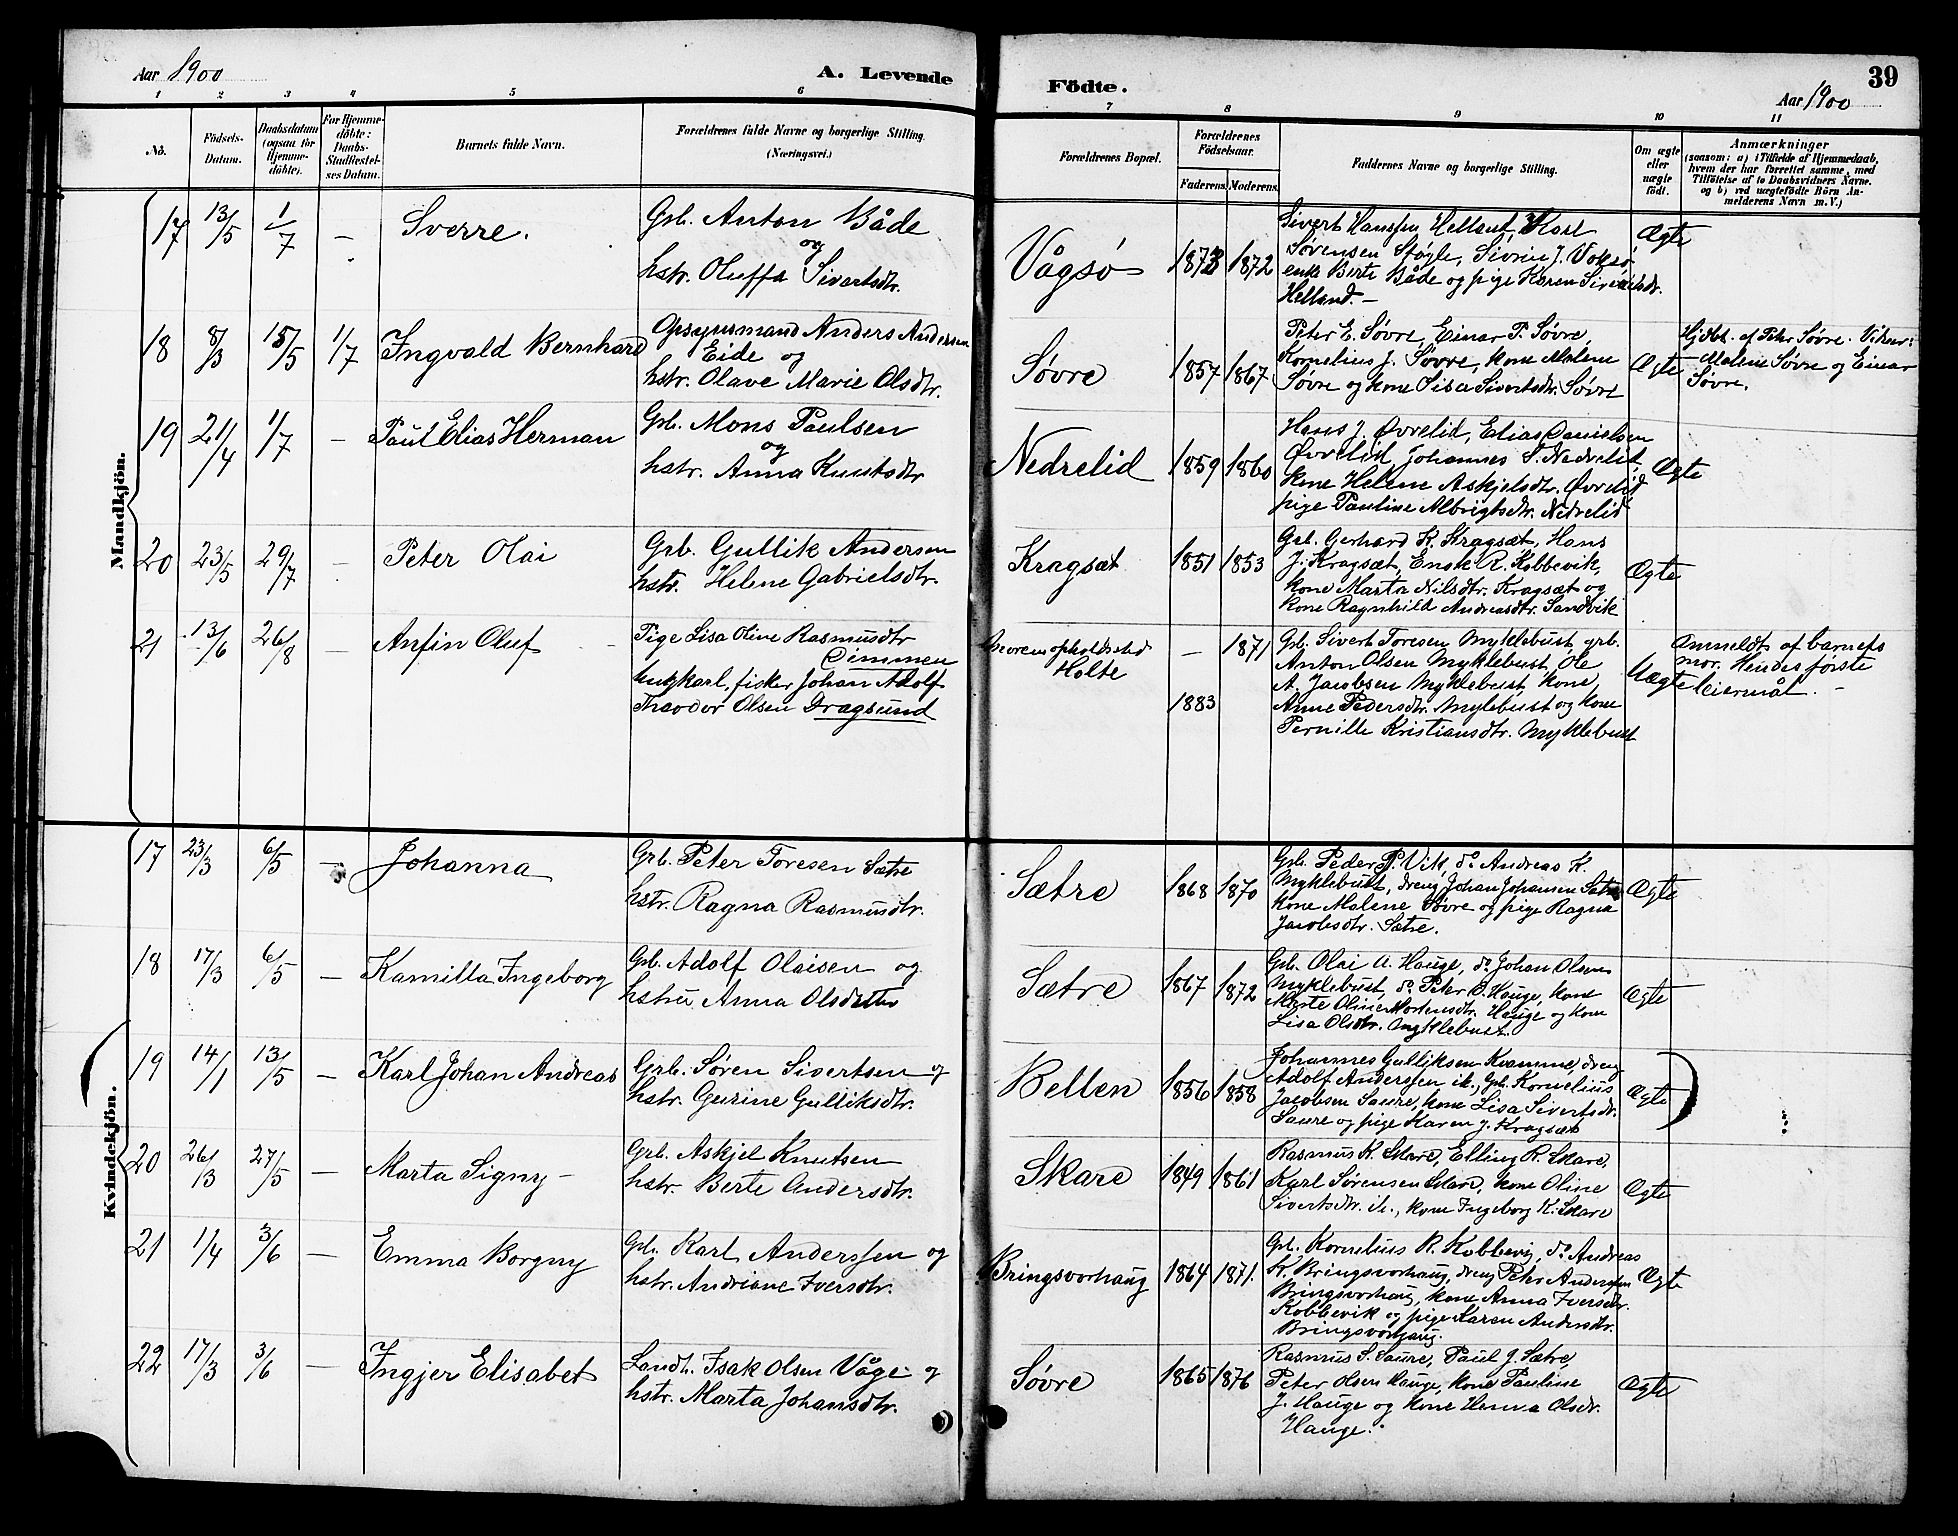 Aar 1900
A. Levende
Födte.
39
Aar 1900
1 2 3 4 5 6 7 8 9 10 11
No.
Födsels-
Datum.
Daabsdatum
(ogsaa for
Hjemme-
döbte).
For Hjemme-
döbte:
Daabs-
Stadfæstel-
ses Datum.
Barnets fulde Navn.
Forældrenes fulde Navne og borgerlige Stilling.
(Næringsvei.)
Forældrenes Bopæl.
Forældrenes
Födselsaar.
Faderens. Moderens.
Faddernes Navne og borgerlige Stilling.
Om ægte
eller
uægte
födt.
Anmærkninger
(saasom: a) i Tilfælde af Hjemmedaab,
hvem der har forrettet samme, med
Tilföielse af to Daabsvidners Navne,
og b) ved uægtefödte Börn An-
melderens Navn m. V.)
Mandkjön.
17 13/5 1/7 — Sverre.
Grb. Anton Både
og
hstr. Oluffa Sivertsdtr.
Vågsø 1873 1872
Sivert Hanssen Helland, Karl
Sørensen Støyle, Sivrin J. Voksø
enke Berte Både og pige Karen Sivertsdr.
Helland. —
Ægte
18 8/3 15/5 1/7 Ingvald Bernhard
Grsgrusmand Anders Andersen
Eide og
hstr. Olave Marie Olsdtr.
Søvre 1857 1867
Peter E. Søvre, Einar P. Søvre,
Kornelius J. Søvre, kone Malene
Søvre og kone Lisa Sivertsdtr. Søvre
Ægte
Hjdbt. af Peter Søvre. Vidner:
Malene Søvre og Einar
Søvre.
19 21/4 1/7 — Paul Elias Herman
Grb. Mons Paulsen
og
hstr. Anna Knutsdtr
Nedrelid 1859 1860
Hans J. Øvrelid, Elias Danielsen
Øvrelid, Johannes S. Nedrelid,
kone Helene Askjelsdtr. Øvrelid
pige Pauline Albrigtsdtr. Nedrelid
Ægte
20 23/5 29/7 — Peter Olai
Grb. Gullik Andersen
hstr. Helene Gabrielsdtr.
Kragsæt 1851 1853
Grb. Gerhard K. Kragsæt, Hans
J. Kragsæt, Enok R. Kobbevik,
kone Marta Nilsdtr. Kragsæt og
kone Ragnhild Andreasdtr. Sandvik
Ægte
21 13/6 26/8 — Anfin Oluf
Pige Lisa Oline Rasmusdtr
Dimmen
Ungkarl, fisker Johan Adolf
Theodor Olsen Dragsund
Moren opholdssted
Holte
— 1871
1883
Grb. Sivert Toresen Myklebust, grb.
Anton Olsen Myklebust, Ole
A. Jacobsen Myklebust, kone
Anne Pedersdtr. Mylebust og kone
Pernille Kristiansdtr. Myklebust
Uægte
Anmeldt af barnets
mor. Hendes første
leiermål. —
Kvindekjön.
17 23/3 6/5 — Johanna
Grb. Peter Toresen Sætre
hstr. Ragna Rasmusdtr.
Sætre 1868 1870
Grb. Peder P. Vik, do. Andreas K.
Myklebust, dreng Johan Johansen Sætre
kone Malene Søvre og pige Ragna
Jacobsdtr. Sætre.
Ægte
18 17/3 6/5 — Kamilla Ingeborg
Grb. Adolf Olaisen og
hstru Anna Olsdatter
Sætre 1867 1872
Grb. Olai A. Hauge, do. Johan Olsen
Myklebust, do. Peter O. Hauge, kone
Marte Oline Mortensdtr. Hauge og kone
Lisa Olsdtr. Myklebust.
Ægte
19 14/1 13/5 — Karl Johan Andreas
Grb. Søren Sivertsen og
hstr. Gurine Gulliksdtr.
Bellen 1856 1858
Johannes Gulliksen Kvamme, dreng
Adolf Anderssen ib., grb. Kornelius
Jacobsen Saure, kone Lisa Sivertsdr.
Saure og pige Karen J. Kragsæt
Ægte
20 26/3 27/5 — Marta Signy —
Grb. Askjel Knutsen
hstr. Berte Andersdtr.
Skare 1849 1861
Rasmus K. Skare, Elling R. Skare,
Karl Sørensen Skare, kone Oline
Sivertsdtr. ib., kone Ingeborg K. Skare
Ægte
21 1/4 3/6 — Emma Borgny
Grb. Karl Anderssen og
hstr. Andriane Iversdtr.
Bringsvorhaug 1864 1871.
Grb. Kornelius R. Kobbevig, do. Andreas
K. Bringsvorhaug, dreng Peter Anderssen
Bringsvorhaug, kone Anna Iversdtr.
Kobbevik og pige Karen Andersdtr.
Bringsvorhaug.
Ægte
22 17/3 3/6 — Ingjer Elisabet
Landh. Isak Olsen Våge og
hstr. Marta Johansdtr.
Søvre 1865 1876
Rasmus S. Saure, Paul J. Sætre,
Peter Olsen Hauge, kone Pauline
J. Hauge og kone Hanna Olsdr.
Hauge.
Ægte